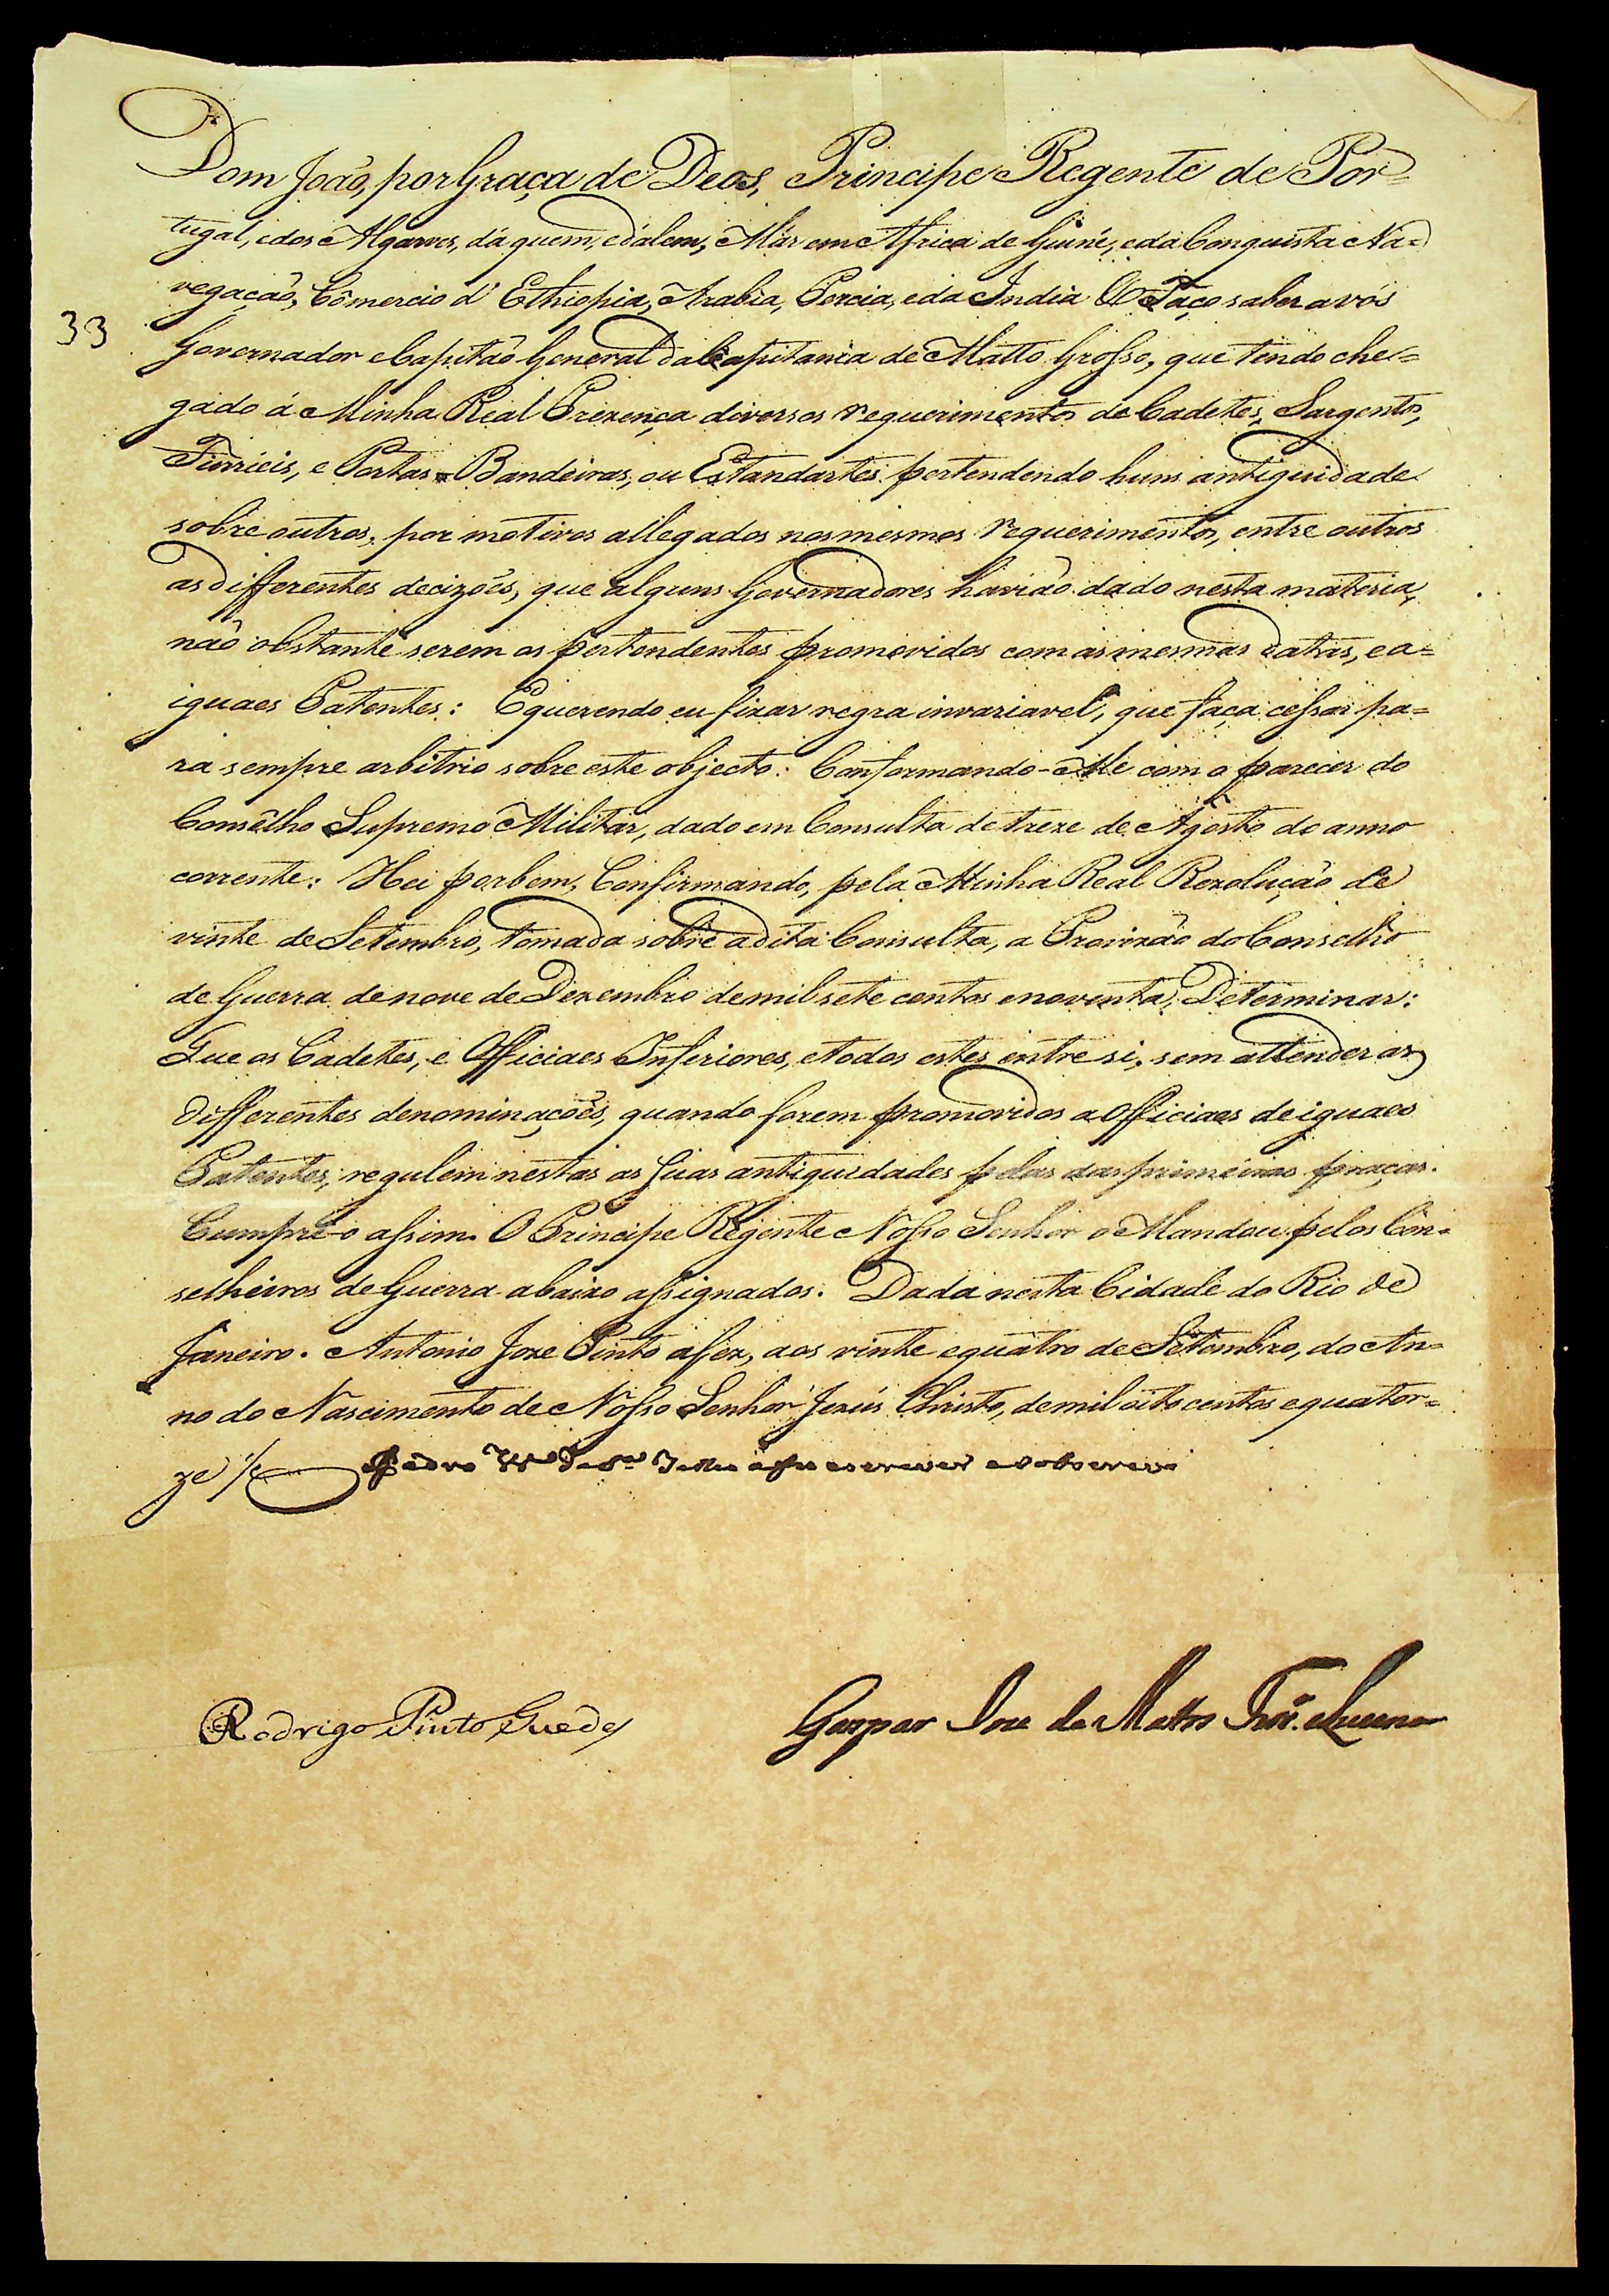 Dom João, por Graça de Deos, Principe Regente de Por=
tugal, e dos Algarves, dá quem, e dálem, Már em Africa de Guiné, e da Conquista Na=
vegação, Cõmercio d' Ethiopia, Arabia, Percia, e da India &c Faço saber a vós
33
Governador e Capitão General da Capitania de Matto Grosso, que tendo che=
gado á Minha Real Prezença diversos requerimentos de Cadetes, Sargentos,
Furrieis, e Portas=Bandeiras, ou Estandartes pertendendo huns antiguidade
sobre outros, por motivos allegados nos mesmos requerimentos, entre outros
as differentes decizões, que alguns Governadores havião dado nesta materia,
não obstante serem os pertendentes promovidos com as mesmas datas, e a=
iguaes Patentes: E querendo eu fixar regra invariavel, que faça cessar pa=
ra sempre arbitrio sobre este objecto: Conformando-Me com o parecer do
Consêlho Supremo Militar, dado em Consulta de treze de Agosto do anno
corrente: Hei por bem, Confirmando, pela Minha Real Rezolução de
vinte de Setembro, tomada sobre a dita Consulta, a Provizão do Conselho
de Guerra de nove de Dezembro de mil sete centos e noventa, Determinar:
Que os Cadetes, e Officiaes Inferiores, e todos estes entre si, sem attender as
differentes denominações, quando forem promovidos a Officiaes de iguaes
Patentes, regulem nestas as suas antiguidades pelas das primeiras praças.
Cumpri-o assim. O Principe Regente Nosso Senhor o Mandou pelos Con=
selheiros de Guerra abaixo assignados. Dada nesta Cidade do Rio de
Janeiro. Antonio Joze Pinto a fez, aos vinte e quatro de Setembro, do An=
no do Nascimento de Nosso Senhor Jezús Christo, de mil oito centos e quator=
ze
Pedro a fiz escrever e sobscrevi
Rodrigo Pinto Guedes
Gaspar Joze de Mattos Frr.ª e Lucena